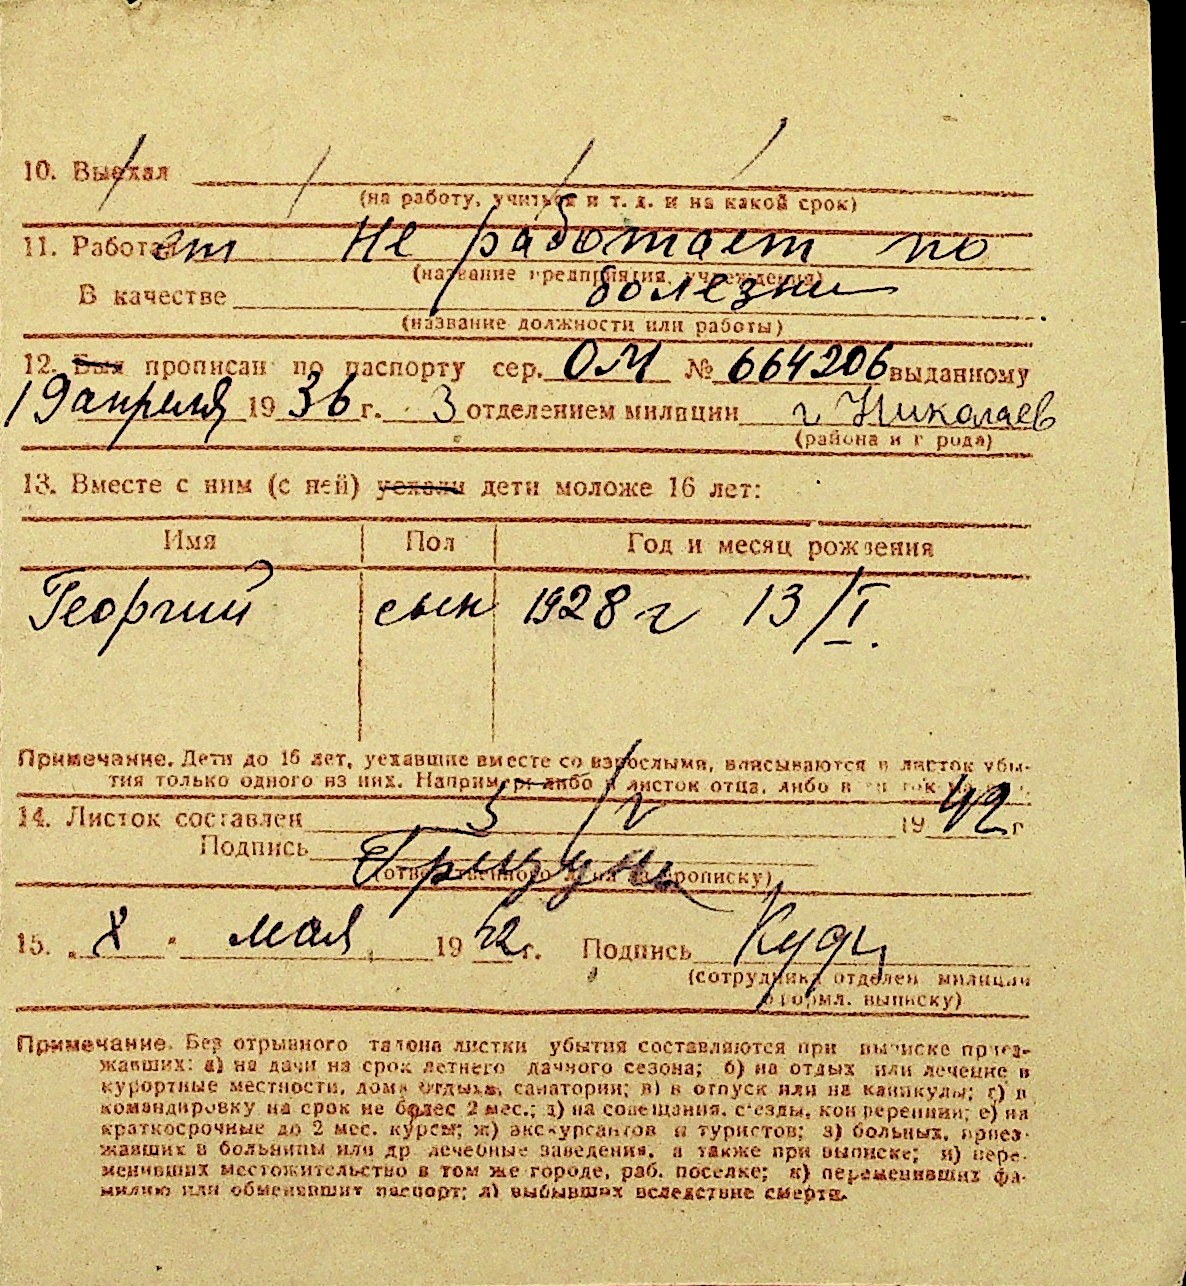 10. Выехал
(на работу, учиться и т. д. и на какой срок)
11. Работает Не работает по
(название предприятия, учреждения)
В качестве болезни
(название должности или работы)
12. Был прописан по паспорту сер. ОМ № 664206 выданному
19 апреля 1936 г. 3 отделением милиции г Николаев
(района и города)
13. Вместе с ним (с ней) уехали дети моложе 16 лет:
Имя Пол Год и месяц рождения
Георгий сын 1928 г 13/I.
Примечание. Дети до 16 лет, уехавшие вместе со взрослыми, вписываются в листок убы-
тия только одного из них. Например: либо в листок отца, либо в
14. Листок составлен 5/V 1942 г
Подпись
(ответственного за прописку)
15. мая 1942 г. Подпись
(сотрудника отделен милиции
оформл. выписку)
Примечание. Без отрывного талона листки убытия составляются при выписке приез-
жавших: а) на дачи на срок летнего дачного сезона; б) на отдых или лечение в
курортные местности, дома отдыха, санатории; в) в отпуск или на каникулы; г) в
командировку на срок не более 2 мес.; д) на совещания, съезды, конференции; е) на
краткосрочные до 2 мес. курсы; ж) экскурсантов и туристов; з) больных, приез-
жавших в больницы или др лечебные заведения, а также при выписке; и) пере-
менивших местожительство в том же городе, раб. поселке; к) переменивших фа-
милию или обменявших паспорт; л) выбывших вследствие смерти.